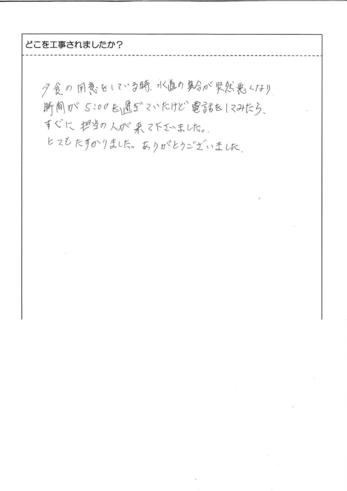 どこを工事されましたか？
夕食の用意をしている時、水道の具合が突然悪くなり
時間が5:00を過ぎていたけど電話をしてみたら、
すぐに担当の人が来て下さいました。
とてもたすかりました。ありがとうございました。